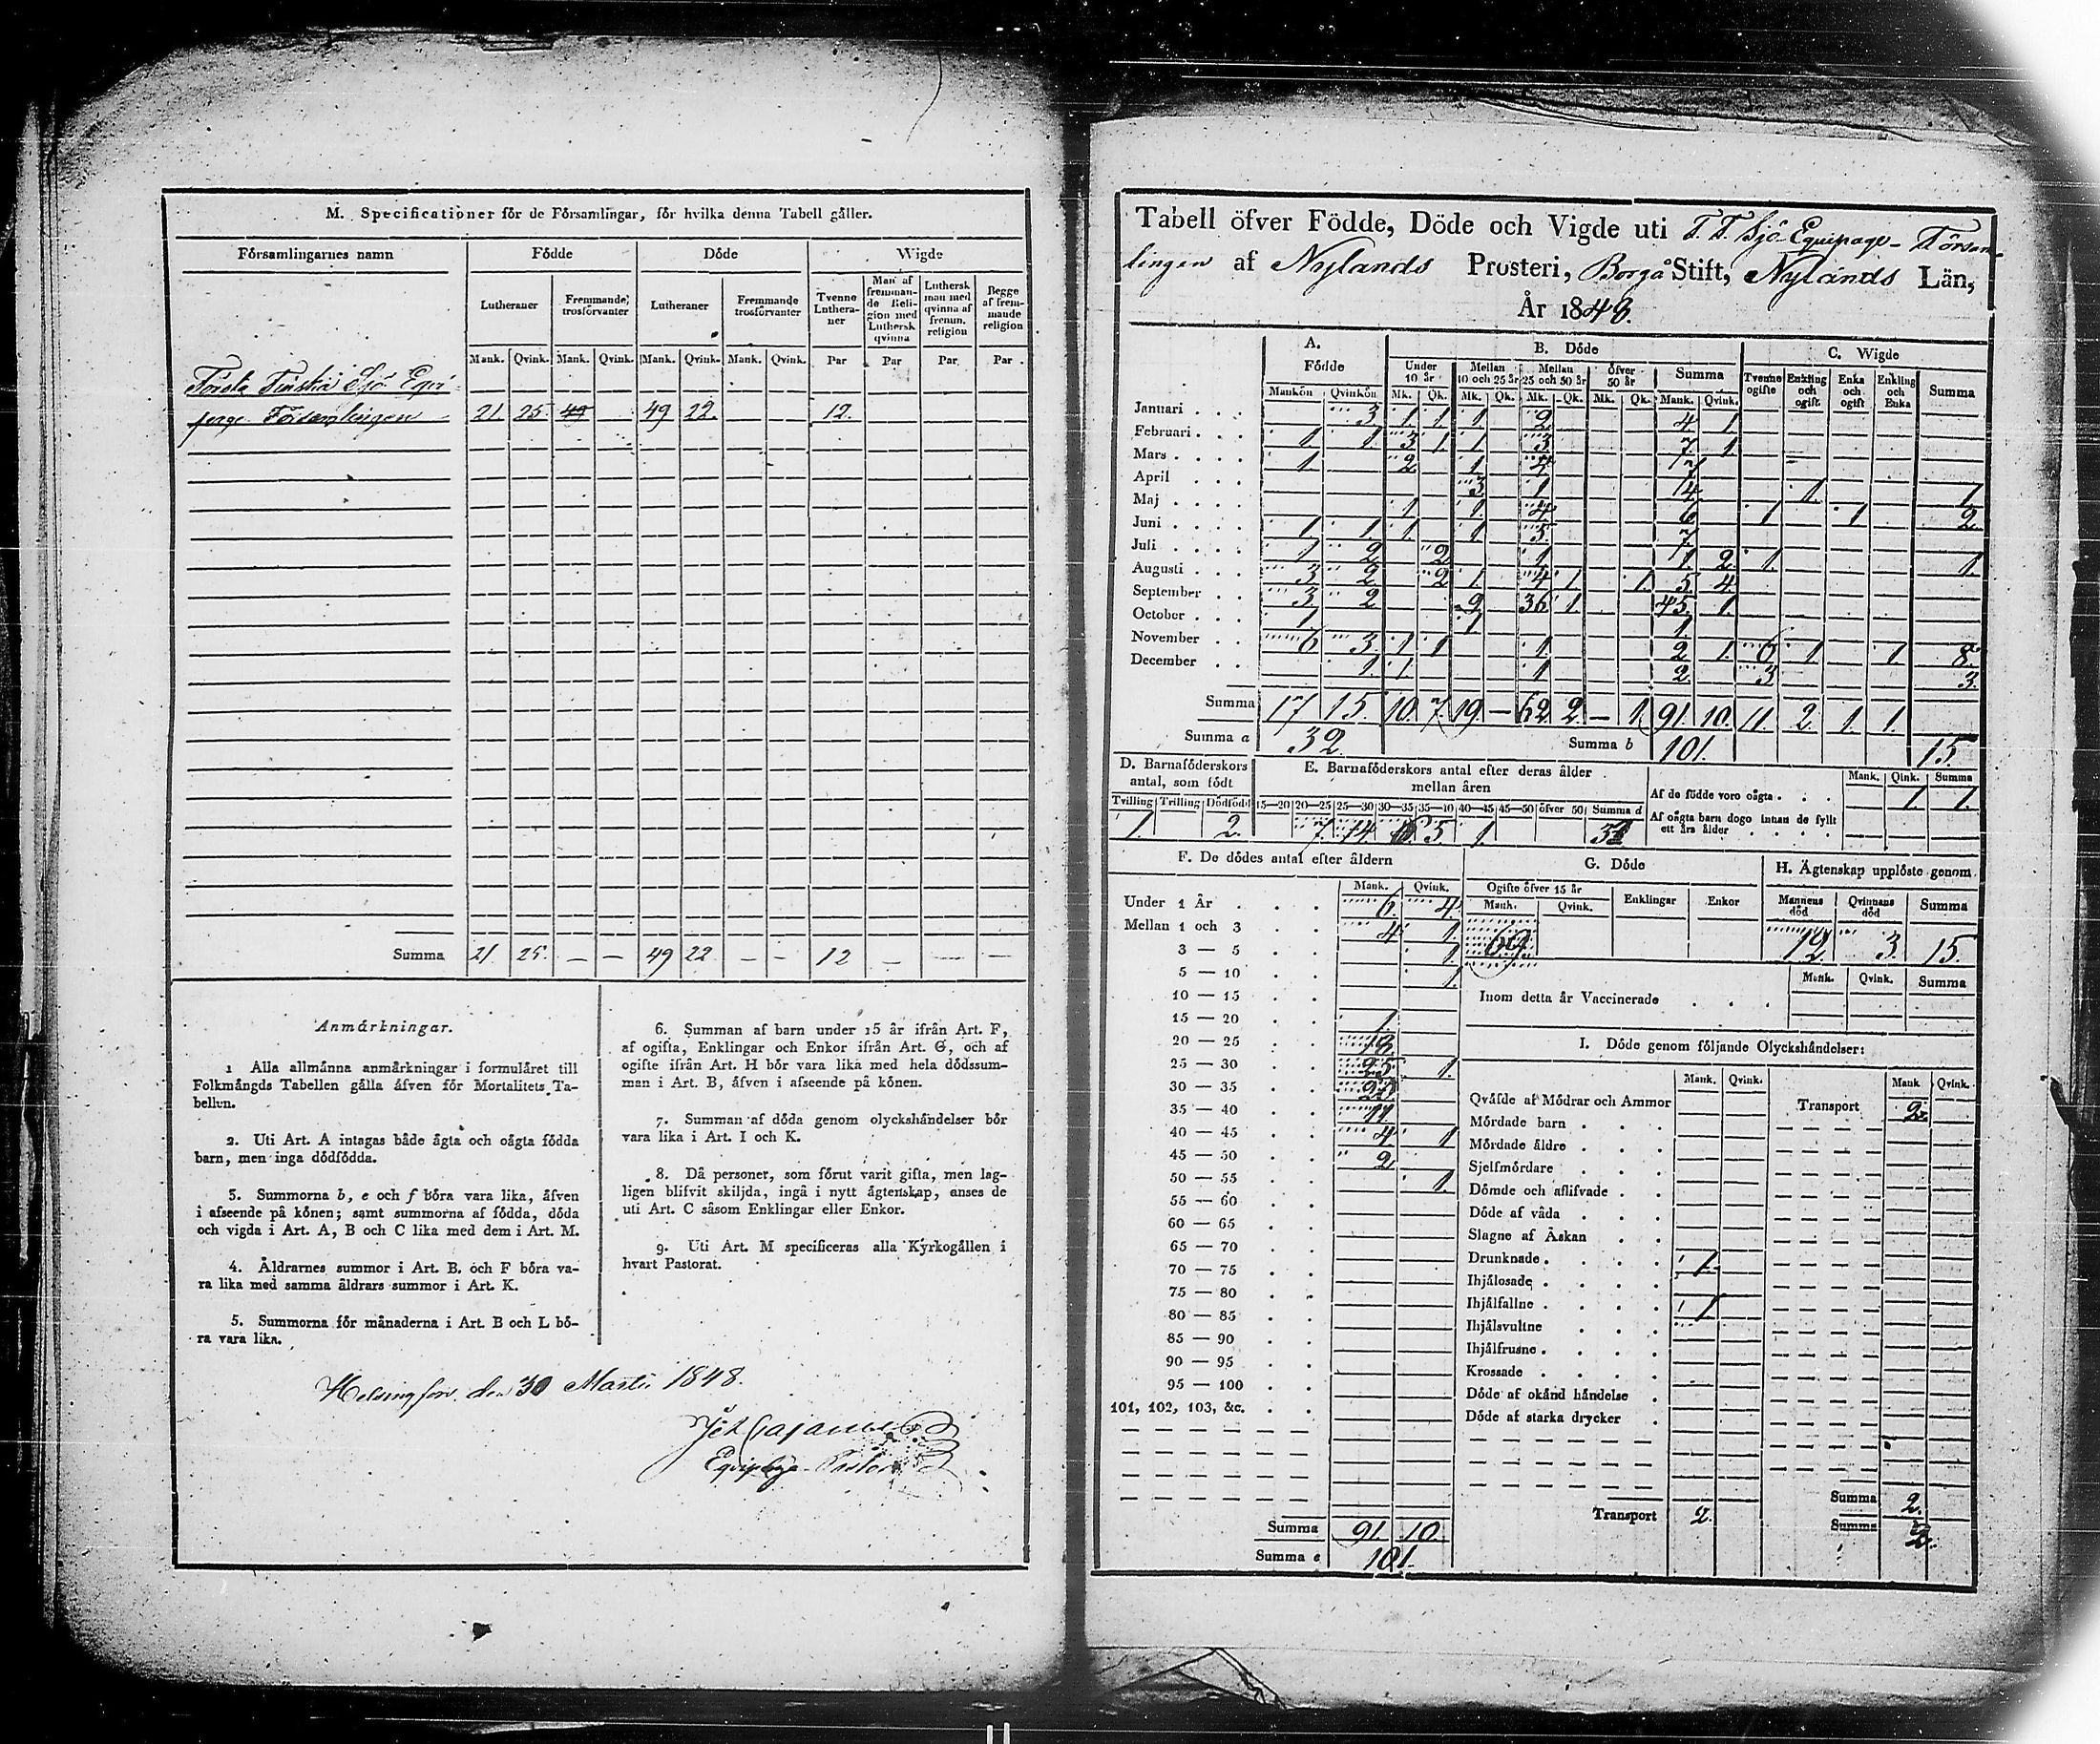 M. Specificationer för de Församlingar, för hvilka denna Tabell gäller.
Församlingarnes namn | Födde | Döde | Wigde
Lutheraner | Fremmande trosförvanter | Lutheraner | Fremmande trosförvanter | Tvenne Lutheraner | Man af fremmande Religion med Luthersk qvinna | Luthersk man med qvinna af fremm. religion | Begge af fremmande religion
Mank. | Qvink. | Mank. | Qvink. | Mank. | Qvink. | Mank. | Qvink. | Par | Par | Par | Par
Första Finska Sjö Equi-
page Församlingen 21. 25. 49 49 22. 12.
Summa 21 25. — — 49 22 — — 12 — — —
Anmärkningar.
1 Alla allmänna anmärkningar i formuläret till
Folkmängds Tabellen gälla äfven för Mortalitets Ta-
bellen.
2. Uti Art. A intagas både ägta och oägta födda
barn, men inga dödfödda.
3. Summorna b, e och f böra vara lika, äfven
i afseende på könen; samt summorna af födda, döda
och vigda i Art. A, B och C lika med dem i Art. M.
4. Åldrarnes summor i Art. B. och F böra va-
ra lika med samma åldrars summor i Art. K.
5. Summorna för månaderna i Art. B och L bö-
ra vara lika.
6. Summan af barn under 15 år ifrån Art. F,
af ogifta, Enklingar och Enkor ifrån Art. G, och af
ogifte ifrån Art. H bör vara lika med hela dödssum-
man i Art. B, äfven i afseende på könen.
7. Summan af döda genom olyckshändelser bör
vara lika i Art. I och K.
8. Då personer, som förut varit gifta, men lag-
ligen blifvit skiljda, ingå i nytt ägtenskap, anses de
uti Art. C såsom Enklingar eller Enkor.
9. Uti Art. M specificeras alla Kyrkogällen i
hvart Pastorat.
Helsingfors den 30 Martii 1848.
Cajanus
Equipage-Pastor
Tabell öfver Födde, Döde och Vigde uti F. F. Sjö-Equipage-Försam-
lingen af Nylands Prosteri, Borgå Stift, Nylands Län,
År 1848.
A. Födde | B. Döde | C. Wigde
Under 10 år | Mellan 10 och 25 år | Mellan 25 och 50 år | öfver 50 år | Summa | Tvenne ogifte | Enkling och ogift | Enka och ogift | Enkling och Enka | Summa
Mankön | Qvinkön | Mk. | Qk. | Mk. | Qk. | Mk. | Qk. | Mk. | Qk. | Mank. | Qvink.
Januari . . . 3 1 1 1 2 4 1
Februari . . . 1 1. 3 1 1 3 7 1
Mars . . . . 1 2 1 4 7
April . . . 3 1 4 1. 1
Maj . . . . 1 1. 4 6 1 1 2
Juni . . . . 1 1 1. 1 5 7
Juli . . . . 1 2 2 1 1. 2 1. 1.
Augusti . . . 3 2 2 1 4 1 1. 5 4
September . . 3. 2 9 36 1. 45. 1.
October . . . 1 1 1
November . . 6 3 1 1 1 2 1 6 1 1 8.
December . . 1 1. 1 2 3 3.
Summa 17 15. 10. 7. 19 — 62 2 — 1 91. 10. 11. 2. 1. 1.
Summa a 32. Summa b 101. 15.
D. Barnaföderskors antal, som födt
Tvilling | Trilling | Dödfödt
1. 2.
E. Barnaföderskors antal efter deras ålder mellan åren
15—20 | 20—25 | 25—30 | 30—35 | 35—40 | 40—45 | 45—50 | öfver 50 | Summa d
7 14. 5 1
Mank. | Qink. | Summa
Af de födde voro oägta . . . 1. 1.
Af oägta barn dogo innan de fyllt
ett års ålder . . . .
F. De dödes antal efter åldern
Mank. | Qvink.
Under 1 År . . . 6. 4.
Mellan 1 och 3 . . 4 1.
3 — 5 . . 1.
5 — 10 . . 1.
10 — 15 . .
15 — 20 . . 1
20 — 25 . . 18
25 — 30 . . 25 1.
30 — 35 . . 20
35 — 40 . . 11
40 — 45 . . 4 1
45 — 50 . . 2
50 — 55 . . 1.
55 — 60 . .
60 — 65 . .
65 — 70 . .
70 — 75 . .
75 — 80 . .
80 — 85 . .
85 — 90 . .
90 — 95 . .
95 — 100 . .
101, 102, 103, &c. . .
Summa 91. 10.
Summa e 101.
G. Döde
Ogifte öfver 15 år | Enklingar | Enkor
Mank. | Qvink.
69.
H. Ägtenskap upplöste genom
Mannens död | Qvinnans död | Summa
12. 3. 15.
Mank. | Qvink. | Summa
Inom detta år Vaccinerade . . .
I. Döde genom följande Olyckshändelser:
Mank. | Qvink. | Mank | Qvink.
Qväfde af Mödrar och Ammor
Transport 2.
Mördade barn . . .
Mördade äldre . . .
Sjelfmördare . . .
Dömde och aflifvade . .
Döde af våda . . .
Slagne af Åskan . . .
Drunknade . . . . 1
Ihjälosade . . . .
Ihjälfallne . . . . 1
Ihjälsvultne . . .
Ihjälfrusne . . . .
Krossade . . . .
Döde af okänd händelse .
Döde af starka drycker .
Transport 2.
Summa 2.
Summa 2.